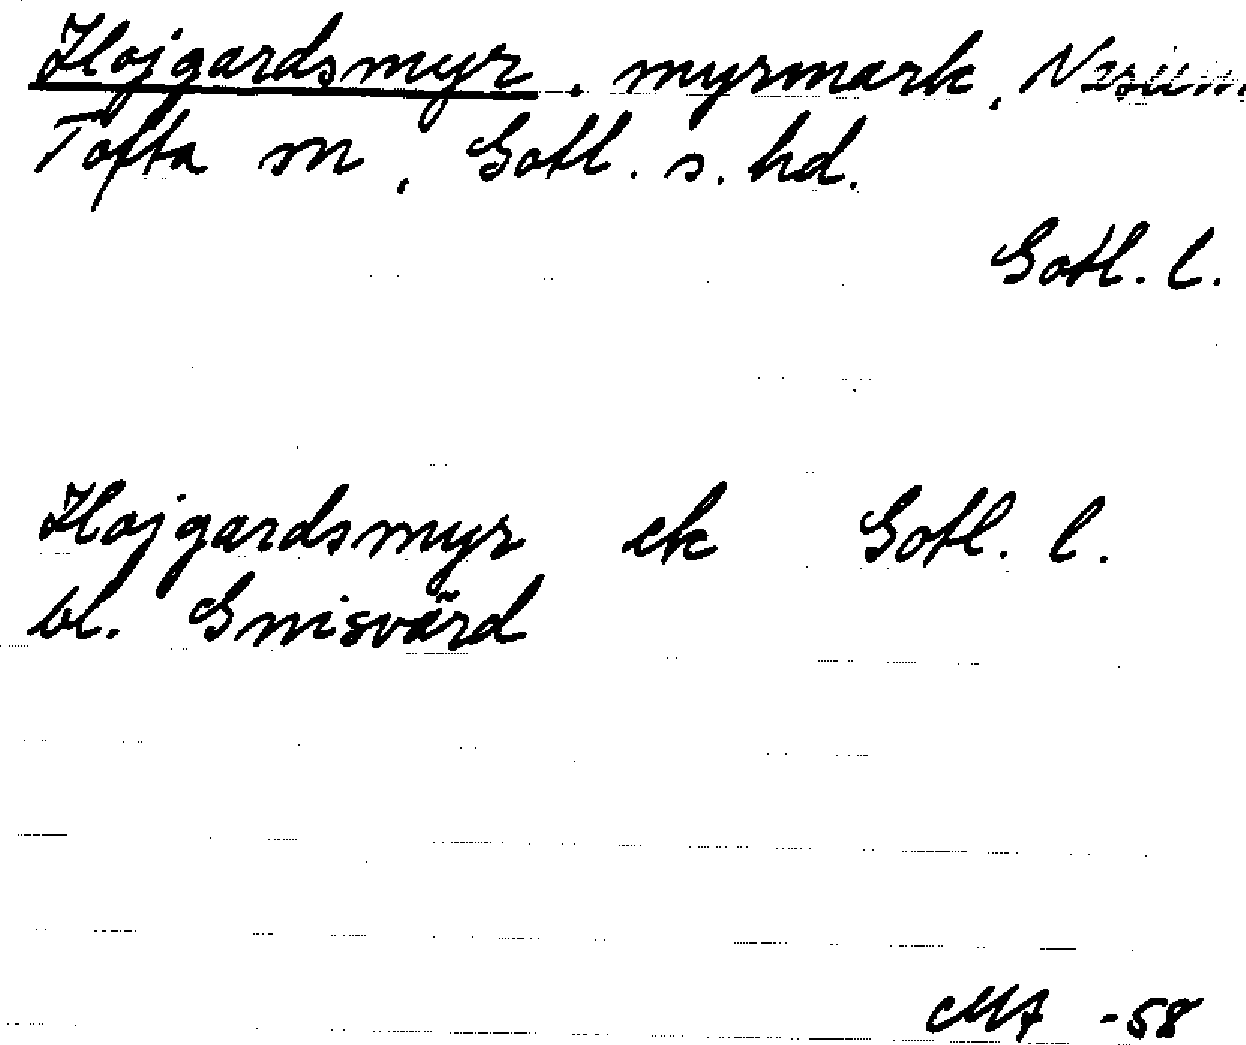 Hojgardsmyr, myrmark,
Tofta sn, Gotl. s. hd.
Gotl. l.
Hojgardsmyr ek Gotl. l.
bl. Gnisvärd
-58